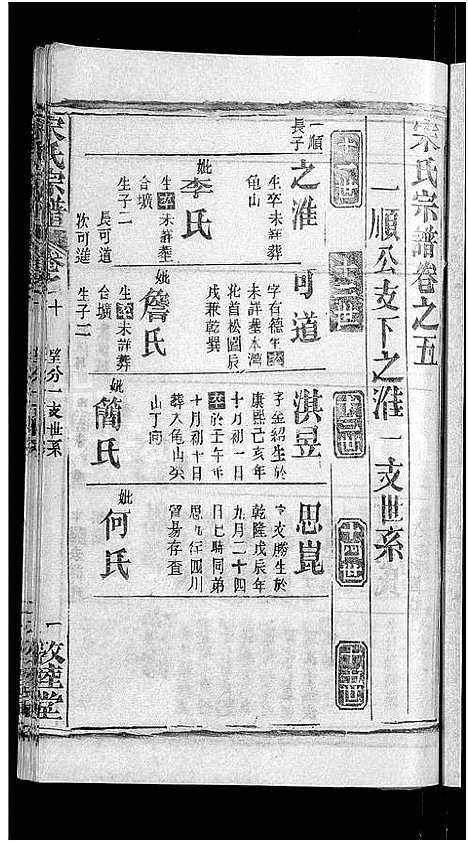 宋氏宗譜卷之五
一順公支下之淮一支世系
十一世
十二世
十三世
十四世
十五世
一順
長子
之淮
生卒未詳葬
龜山
妣李氏
生卒未詳葬
合壙
生子二
長可道
次可進
可道
字有德生卒
未詳葬木灣
北首松圖辰
戌兼乾巽
妣詹氏
生卒未詳葬
合壙
生子二
淇昱
字金紹生於
康熙己亥年
十月初一日
卒於壬午年
十月初十日
葬入龜山癸
山丁向
妣簡氏
思崑
字文勝生於
乾隆戊辰年
九月二十四
日巳時同弟
思九往四川
貿易存查
妣何氏
宋氏宗譜
一支世系
一
敦睦堂